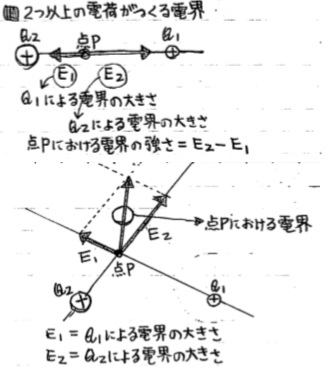 回 2つ以上の電荷がつくる電界
Q2 点P Q1
+ +
E1 E2
Q1による電界の大きさ
Q2による電界の大きさ
点Pにおける電界の強さ=E2-E1
点Pにおける電界
E1 E2
点P
Q2 Q1
+ +
E1=Q1による電界の大きさ
E2=Q2による電界の大きさ